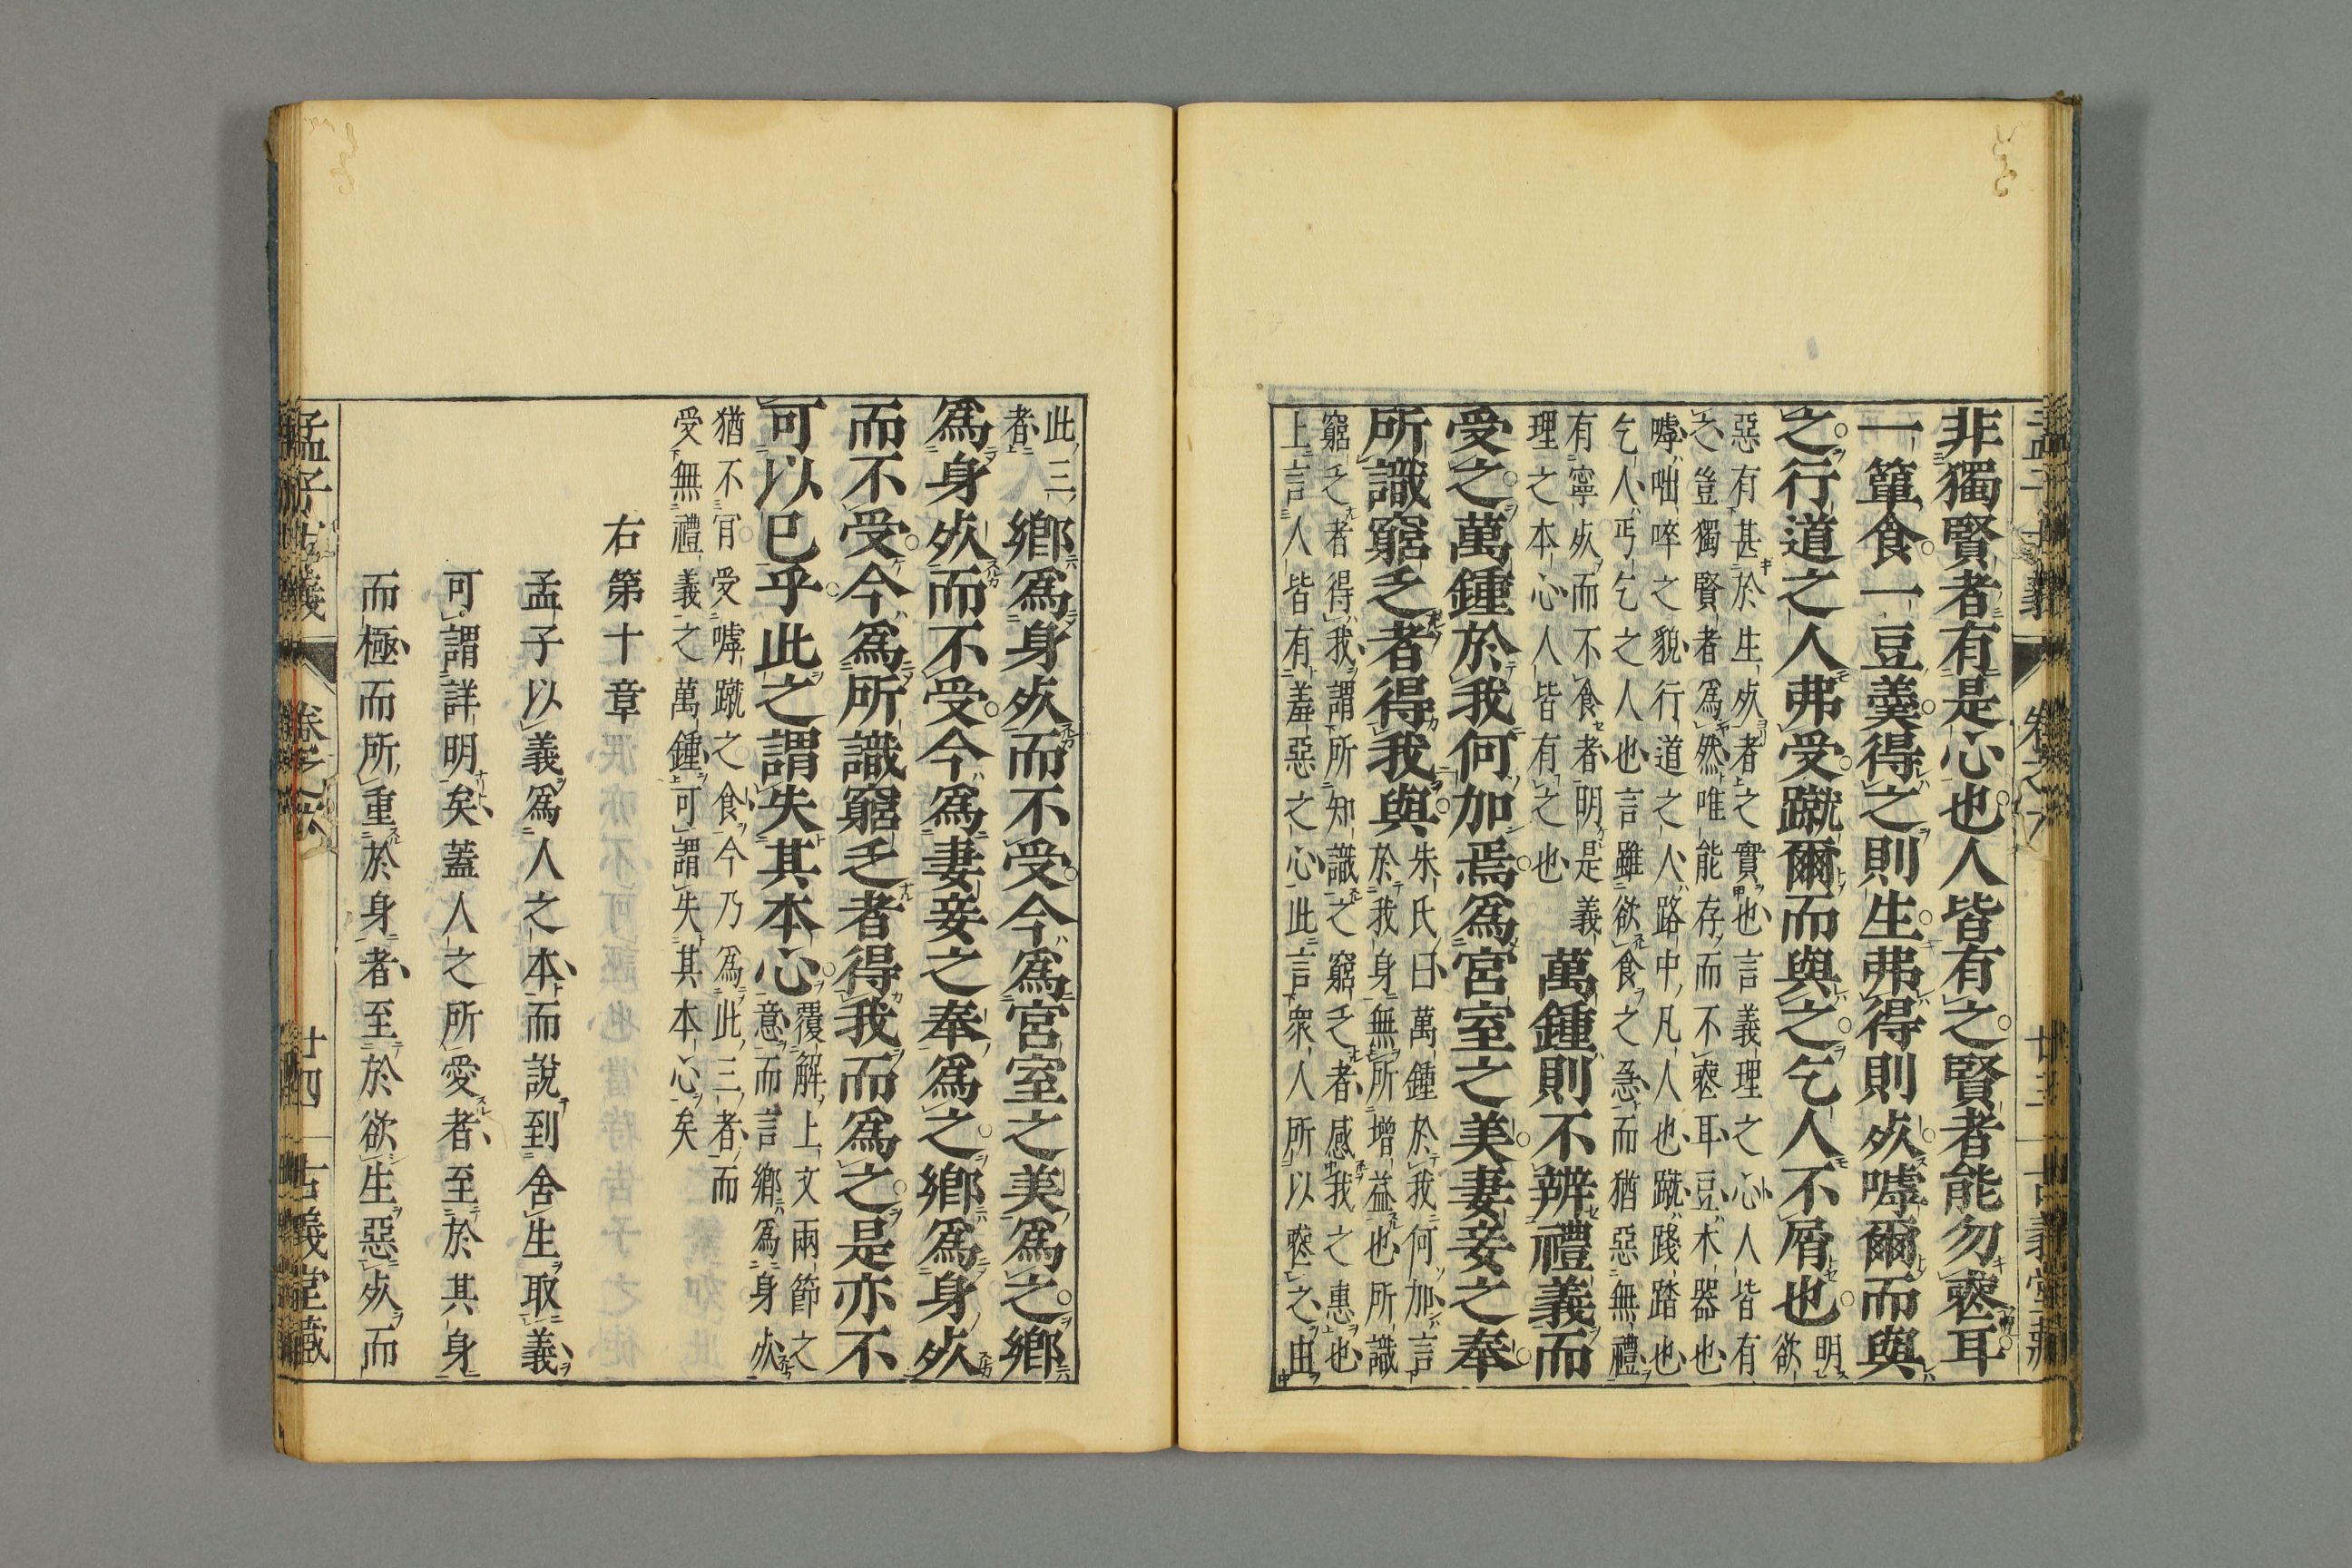 孟子古義 卷之六 廿三 古義堂藏
非獨賢者有是心也人皆有之賢者能勿喪耳
一簞食一豆羹得之則生弗得則死嘑爾而與
之行道之人弗受蹴爾而與之乞人不屑也
明
欲
惡有甚於生死者之實也言義理之心人皆有
之豈獨賢者爲然唯能存而不喪耳豆木器也
嘑咄啐之貌行道之人路中凡人也蹴踐踏也
乞人丐乞之人也言雖欲食之急而猶惡無禮
有寧死而不食者明是義
理之本心人皆有之也
萬鍾則不辨禮義而
受之萬鍾於我何加焉爲宮室之美妻妾之奉
所識窮乏者得我與
朱氏曰萬鍾於我何加言
於我身無所增益也所識
窮乏者得我謂所知識之窮乏者感我之惠也
上言人皆有羞惡之心此言衆人所以喪之由
此三
者
鄉爲身死而不受今爲宮室之美爲之鄉
爲身死而不受今爲妻妾之奉爲之鄉爲身死
而不受今爲所識窮乏者得我而爲之是亦不
可以已乎此之謂失其本心
覆解上文兩節之
意而言鄉爲身死
猶不肯受嘑蹴之食今乃爲此三者而
受無禮義之萬鍾可謂失其本心矣
右第十章
孟子以義爲人之本而說到舍生取義
可謂詳明矣蓋人之所愛者至於其身
而極而所重於身者至於欲生惡死而
孟子古義 卷之六 廿四 古義堂藏